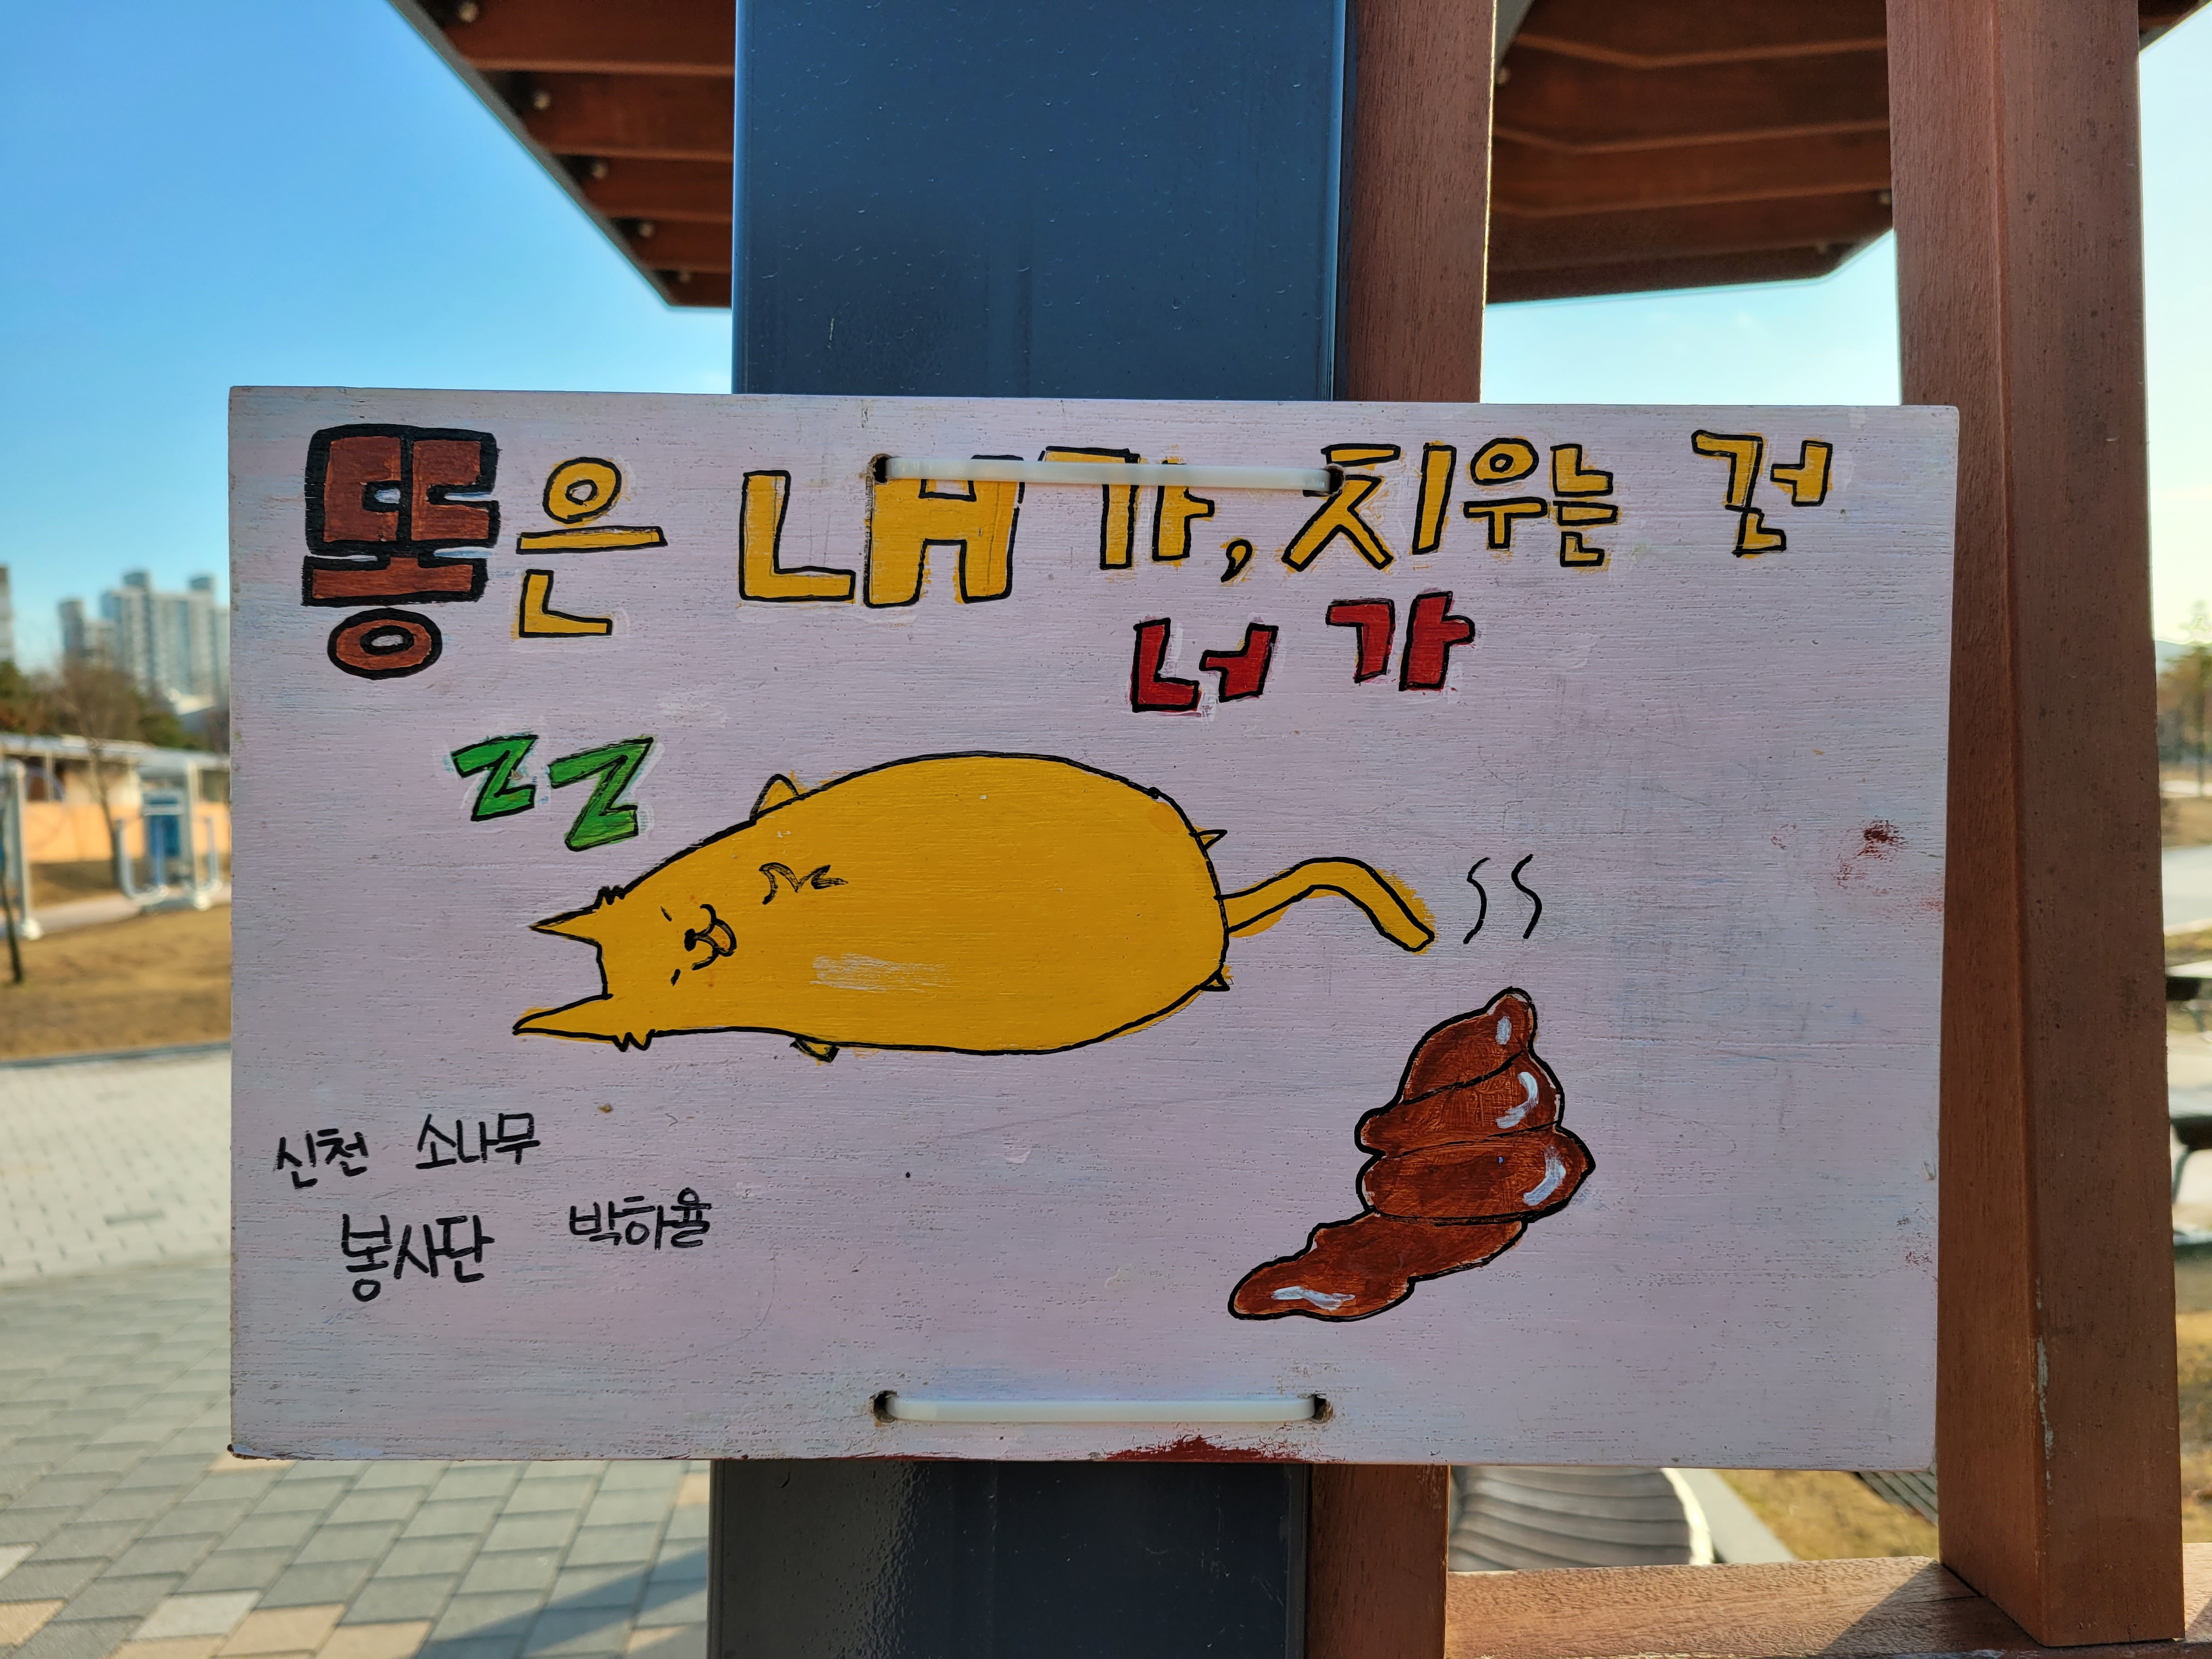 똥은 내가, 치우는 건
너가
ZZ
신천 소나무
봉사단 박하율